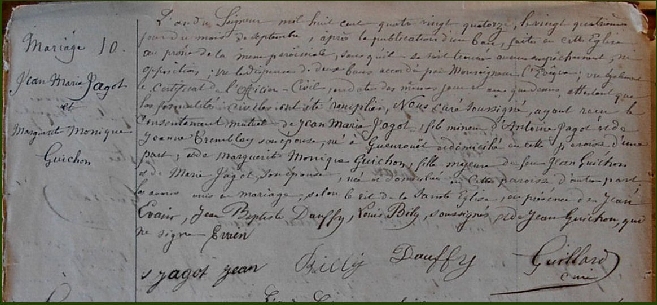 Mariage 10.
Jean Marie Jagot
et
Marguerit Monique
Guichon
L'an du Seigneur mil huit cent quatre vingt quatorze, le vingt quatrième
jour du mois de Septembre, après la publication d'un ban, faite en cette Eglise
au prône de la messe paroissiale, sans qu'il se soit trouvé aucun empêchement, ni
opposition; vu la dispense de deux bans accordé par Monseigneur l'Evêque; vu également
le certificat de l'Officier Civil, en date des mêmes jour et an que dessus, attestant que
les formalités civiles ont été remplies, Nous curé soussigné, ayant reçu le
Consentement mutuel de Jean Marie Jagot, fils mineur d'Antoine Jagot et de
Jeanne Tremblay son épouse, né à et domicilié en cette paroisse d'une
part; et de Marguerit Monique Guichon, fille majeure de feu Jean Guichon
et de Marie Jagot, son épouse, née et domiciliée en cette paroisse d'autre part
avons unis en mariage, selon le rit de la Sainte Eglise, en présence de Jean
Jean Baptiste Dauffy, Louis soussignés et de Jean Guichon, qui
ne signe
Jagot jean Dauffy Guillard
curé